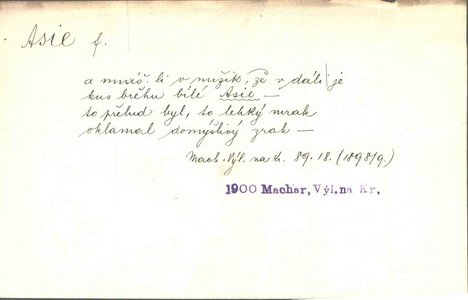 Asie f.
a mníš-li v mžik, že v dáli je
kus břehu bílé Asie —
to přelud byl, to lehký mrak
oklamal domýšlivý zrak —
Mach. Výl. na Kr. 89. 18. (1898/9.)
1900 Machar, Výl. na Kr.